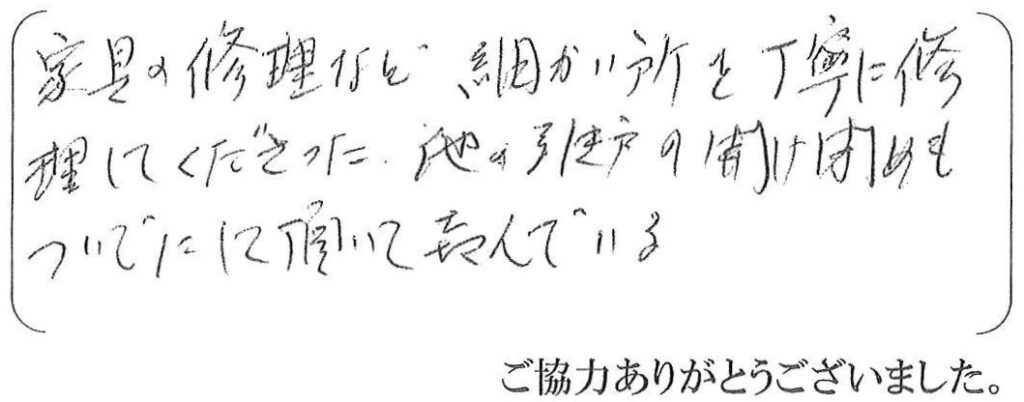 家具の修理など 細かい所を丁寧に修
理してくださった. 他の引き戸の開け閉めも
ついでにして頂いて喜んでいる
ご協力ありがとうございました。